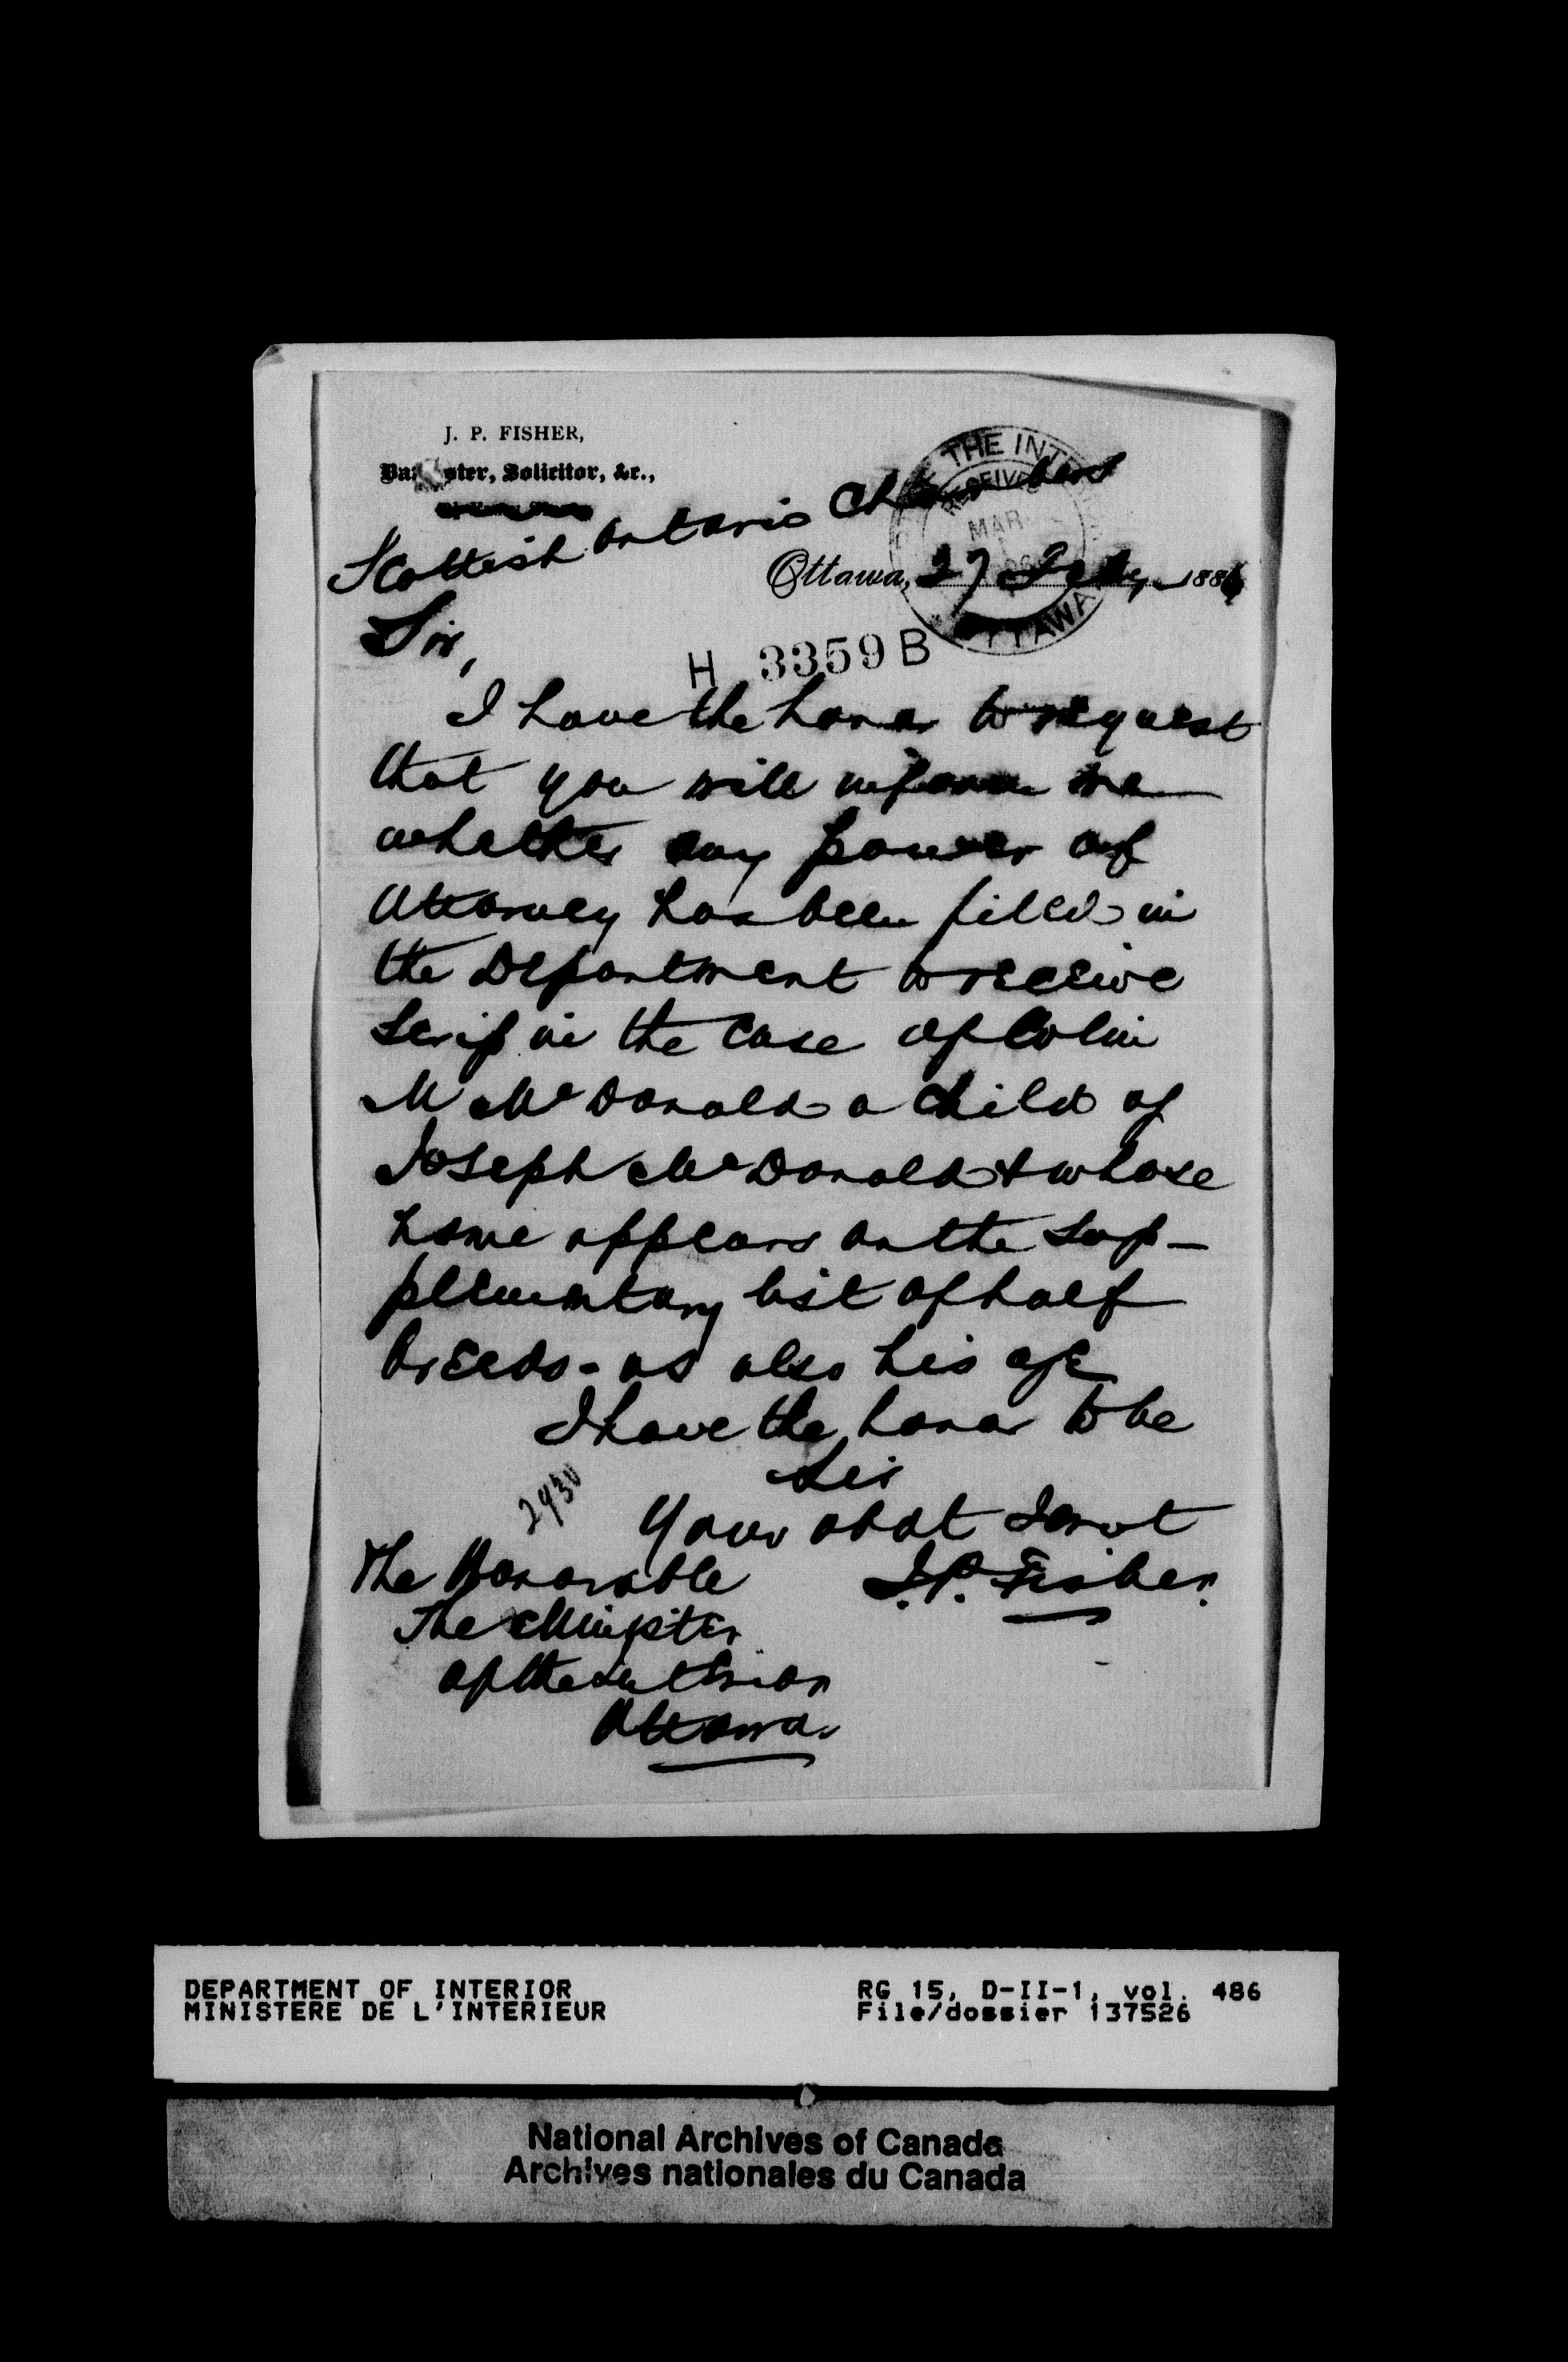 J. P. FISHER,
Barrister, Solicitor, &c.,
Scottish Ontario Chambers
THE INT
RECEIVED
MAR
OTTAWA
Ottawa, 27 Feby 1886
Sir,
H 3359 B
I have the honor to request
that you will inform me
whether any power of
Attorney has been filed in
the Department to receive
Scrip in the case of Colin
M McDonald a child of
Joseph McDonald & whose
name appears on the sup-
plementary list of half
breeds - as also his age
I have the honor to be
Sir
Your obdt Servt
J. P. Fisher.
2930
The Honorable
The Minister
of the Interior
Ottawa.
DEPARTMENT OF INTERIOR
MINISTERE DE L'INTERIEUR
RG 15, D-II-1, vol. 486
File/dossier 137526
National Archives of Canada
Archives nationales du Canada